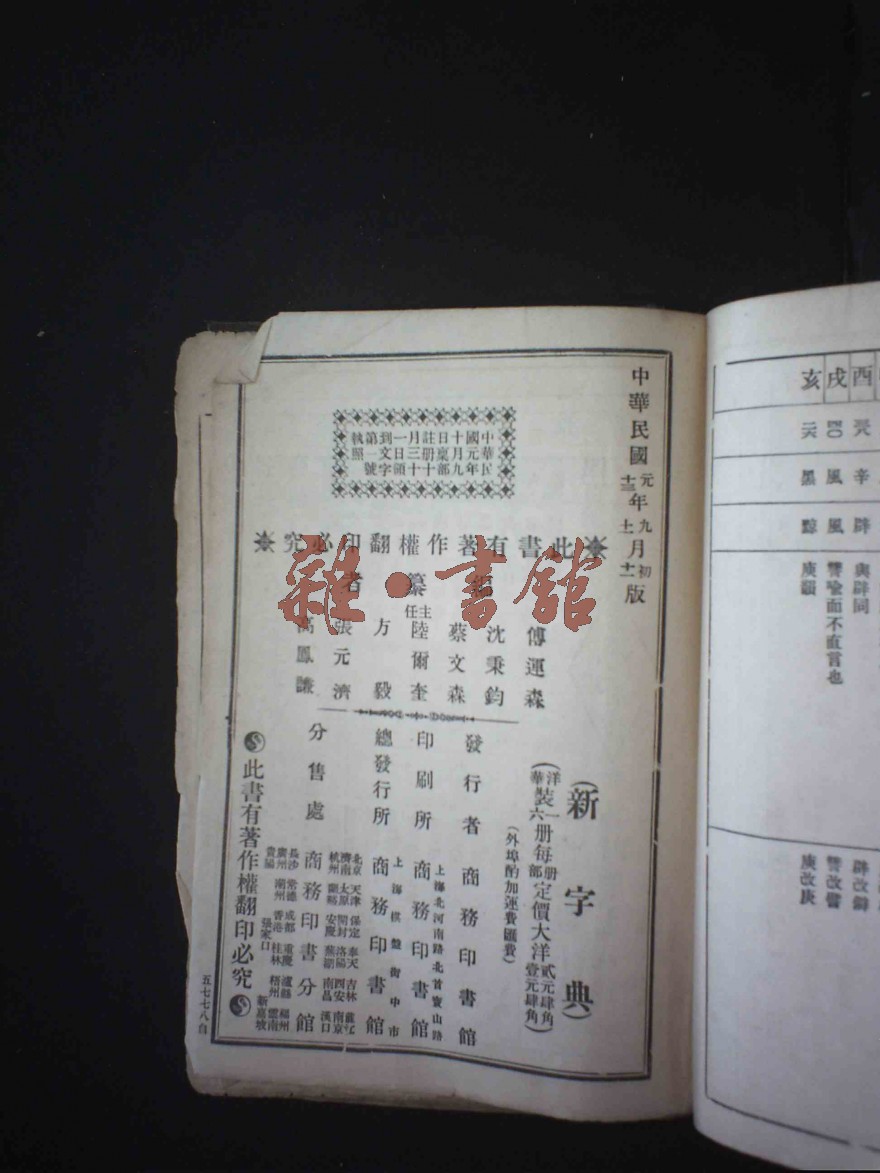 中華民國元年九月初版
十三年十一月十二版
中華民國元年十月九日稟部註册三月十一日到文第一號執照
此書有著作權翻印必究
編纂者
傅運森
沈秉鈞
蔡文森
主任陸爾奎
方毅
張元濟
高鳳謙
(新字典)
洋裝一册每册定價大洋貳元肆角
華裝六册每部定價大洋壹元肆角
(外埠酌加運費匯費)
發行者 商務印書館
印刷所 上海北河南路北首寶山路 商務印書館
總發行所 上海棋盤街中市 商務印書館
分售處 商務印書分館
北京 天津 保定 奉天 吉林
濟南 太原 開封 洛陽 西安 南京
杭州 蘭谿 安慶 蕪湖 南昌 漢口
長沙 常德 成都 重慶 瀘縣 福州
廣州 潮州 香港 桂林 梧州 雲南
貴陽 張家口 新嘉坡
此書有著作權翻印必究
五七七八自
雜·書館
酉 戌 亥
辛 風 黑
辟 風 黥
與辟同
譬喻而不直言也